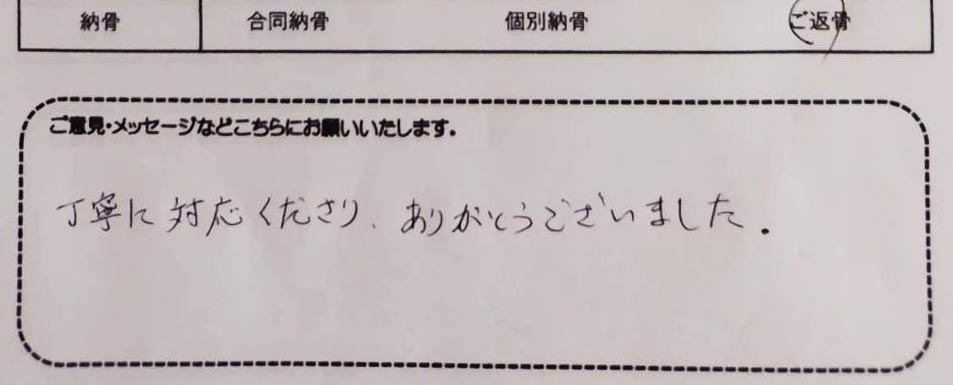 納骨 合同納骨 個別納骨 ご返骨
ご意見・メッセージなどこちらにお願いいたします。
丁寧に対応くださり、ありがとうございました.